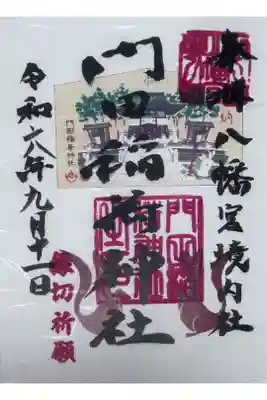 奉拝 八幡宮境内社
門田稲荷神社
門田稲荷神社
令和六年九月十一日
縁切祈願